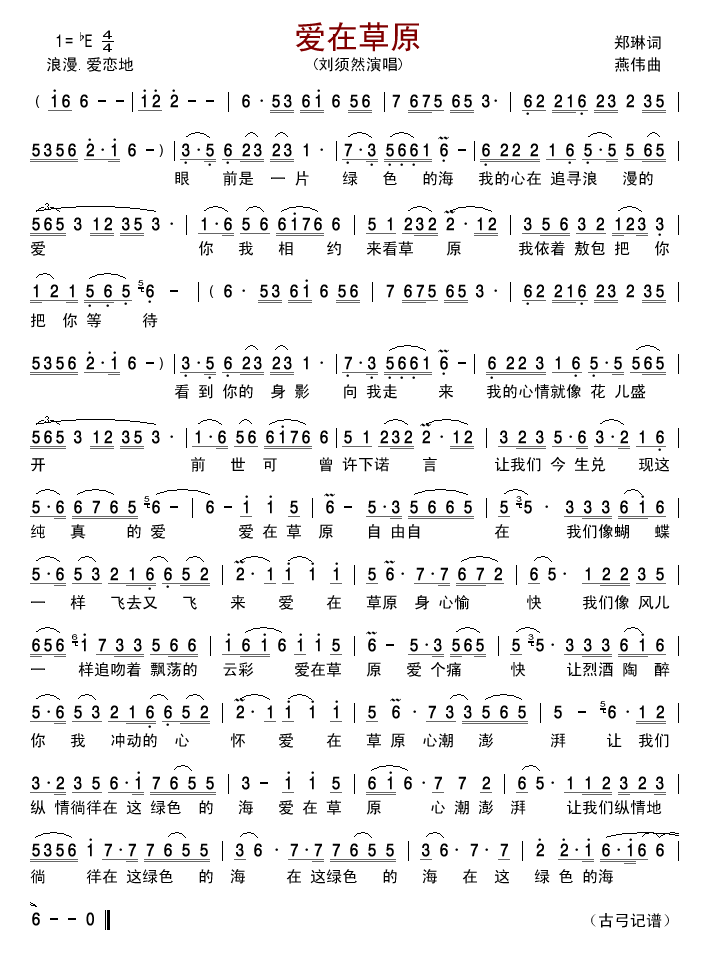 爱在草原
1= ♭E 4/4
郑琳词
浪漫.爱恋地
(刘须然演唱)
燕伟曲
( i6 6 - - | i2 2 - - | 6 · 53 6i 6 56 | 7 675 65 3 · | 62 216 23 2 35 |
5356 2 · i 6 - ) | 3 · 5 6 23 23 1 · | 7 · 3 5661 6 - | 6 22 2 1 6 5 · 5 5 65 |
眼 前是 一 片 绿 色 的海 我的心在 追寻浪 漫的
565 3 12 35 3 · | 1 · 6 5 6 6i76 6 | 5 1 232 2 · 12 | 3 5 6 3 2 123 3 |
爱 你 我 相 约 来看草 原 我依着 敖包 把 你
1 2 1 5 6 5 5 6 - | ( 6 · 53 6i 6 56 | 7 675 65 3 · | 62 216 23 2 35 |
把 你 等 待
5356 2 · i 6 - ) | 3 · 5 6 23 23 1 · | 7 · 3 5661 6 - | 6 22 3 1 6 5 · 5 565 |
看 到 你的 身 影 向 我走 来 我的心情就像 花 儿盛
565 3 12 35 3 · | 1 · 6 56 6i76 6 | 5 1 232 2 · 12 | 3 2 3 5 · 6 3 · 2 1 6 |
开 前 世 可 曾 许下诺 言 让我们 今 生兑 现这
5 · 6 6 7 6 5 5 6 - | 6 - i i 5 | 6 - 5 · 3 5 6 6 5 | 5 3 5 · 3 3 3 6 i 6 |
纯 真 的 爱 爱 在 草 原 自 由自 在 我们像蝴 蝶
5 · 6 5 3 2 1 6 6 5 2 | 2 · i i i i | 5 6 · 7 · 7 6 7 2 | 6 5 · 1 2 2 3 5 |
一 样 飞去又 飞 来 爱 在 草原 身 心愉 快 我们像 风儿
656 6 i 7 3 3 5 6 6 | i 6 i 6 i i 5 | 6 - 5 · 3 565 | 5 3 5 · 3 3 3 6 i 6 |
一 样追吻着 飘荡的 云彩 爱在草 原 爱 个痛 快 让烈酒 陶 醉
5 · 6 5 3 2 1 6 6 5 2 | 2 · i i i i | 5 6 · 7 3 3 5 6 5 | 5 - 5 6 · 1 2 |
你 我 冲动的 心 怀 爱 在 草 原 心潮 澎 湃 让 我们
3 · 2 3 5 6 · i 7 6 5 5 | 3 - i i 5 | 6 i 6 · 7 7 2 | 6 5 · 1 1 2 3 2 3 |
纵 情徜徉在 这 绿色 的 海 爱 在 草 原 心 潮 澎 湃 让我们纵情地
5356 i 7 · 7 7 6 5 5 | 3 6 · 7 · 7 7 6 5 5 | 3 6 · 7 · 7 | 2 2 · i 6 · i 6 6 |
徜 徉在 这绿色 的 海 在 这绿色 的 海 在 这 绿 色 的海
6 - - 0 ‖
(古弓记谱)